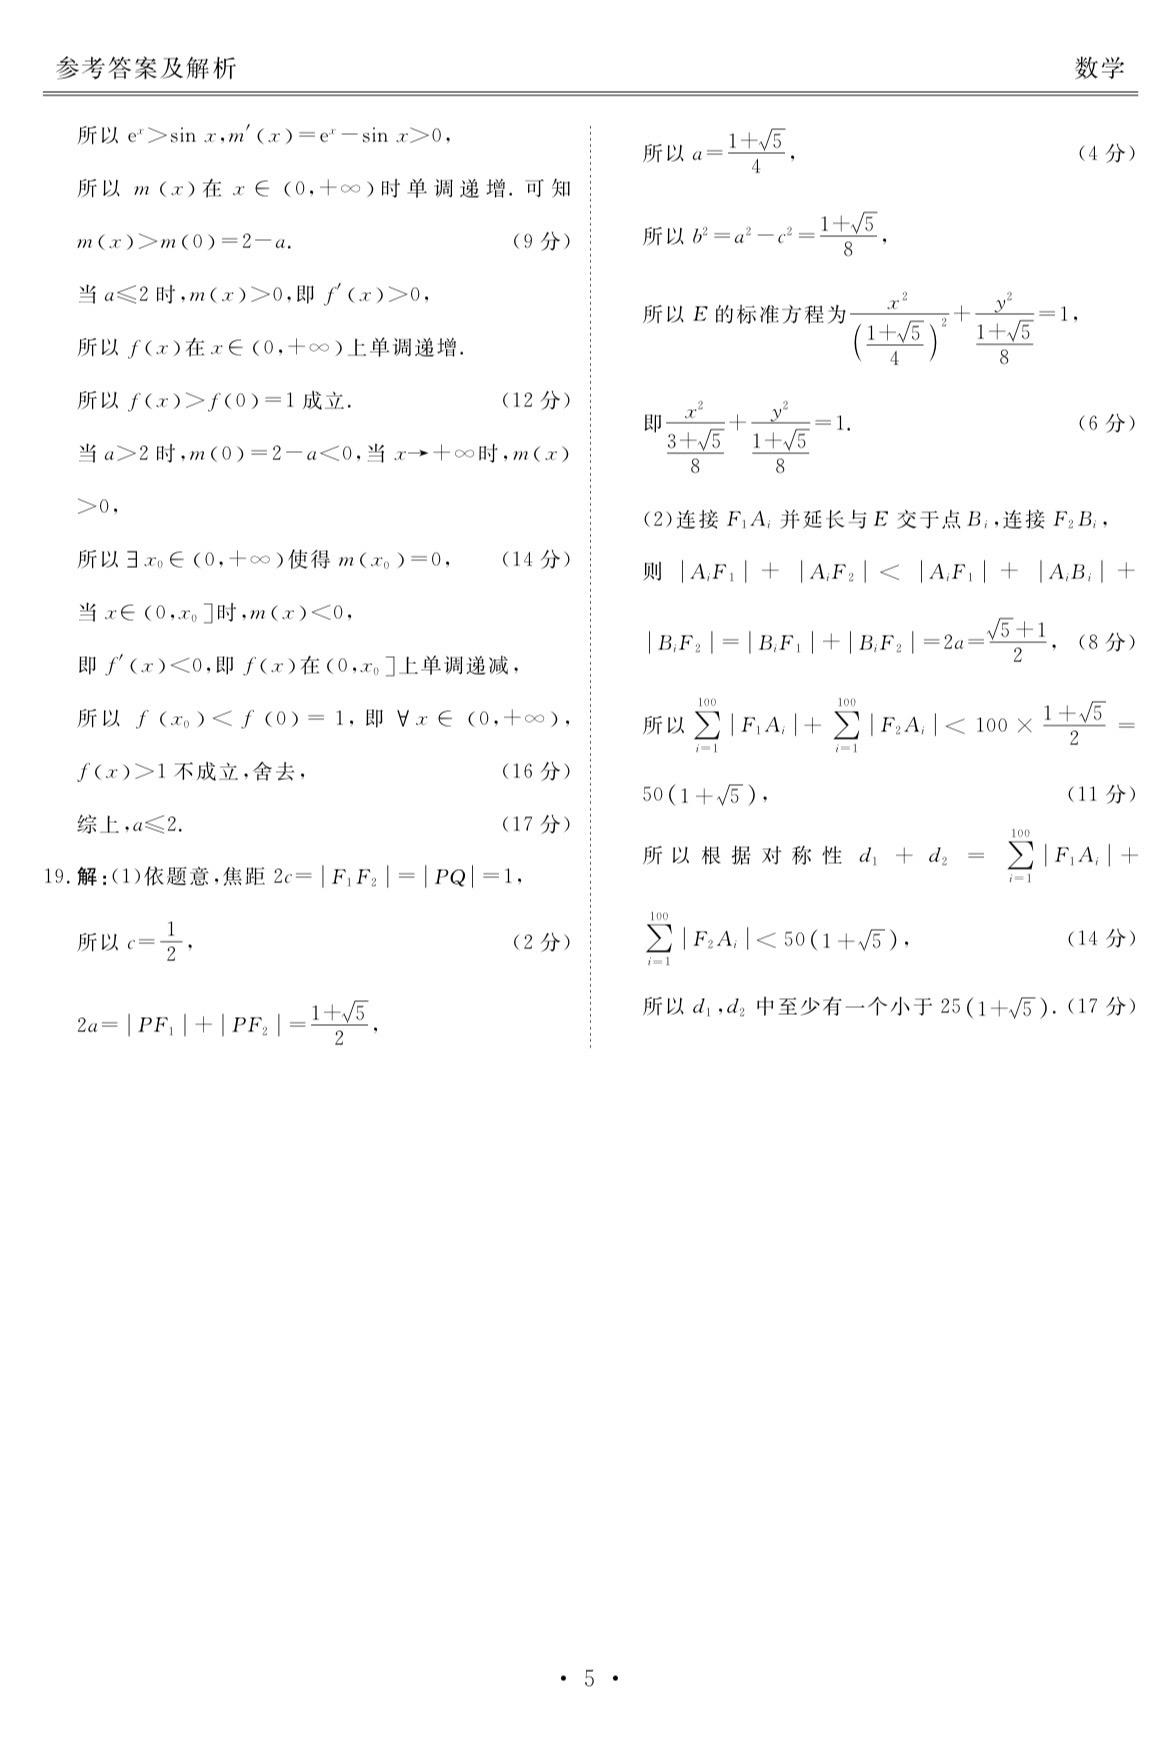 参考答案及解析 数学
所以 eˣ>sin x,m′(x)=eˣ−sin x>0,
所以 m(x)在 x∈(0,+∞)时单调递增. 可知
m(x)>m(0)=2−a. (9 分)
当 a⩽2 时,m(x)>0,即 f′(x)>0,
所以 f(x)在 x∈(0,+∞)上单调递增.
所以 f(x)>f(0)=1 成立. (12 分)
当 a>2 时,m(0)=2−a<0,当 x→+∞时,m(x)
>0,
所以∃x₀∈(0,+∞)使得 m(x₀)=0, (14 分)
当 x∈(0,x₀]时,m(x)<0,
即 f′(x)<0,即 f(x)在(0,x₀]上单调递减,
所以 f(x₀)<f(0)=1,即 ∀x∈(0,+∞),
f(x)>1 不成立,舍去, (16 分)
综上,a⩽2. (17 分)
19. 解:(1)依题意,焦距 2c=|F₁F₂|=|PQ|=1,
所以 c=1/2, (2 分)
2a=|PF₁|+|PF₂|=(1+√5)/2,
所以 a=(1+√5)/4, (4 分)
所以 b²=a²−c²=(1+√5)/8,
所以 E 的标准方程为x²/((1+√5)/4)²+y²/((1+√5)/8)=1,
即x²/((3+√5)/8)+y²/((1+√5)/8)=1. (6 分)
(2)连接 F₁Aᵢ 并延长与 E 交于点 Bᵢ,连接 F₂Bᵢ,
则 |AᵢF₁|+|AᵢF₂|<|AᵢF₁|+|AᵢBᵢ|+
|BᵢF₂|=|BᵢF₁|+|BᵢF₂|=2a=(√5+1)/2, (8 分)
所以 ∑_{i=1}^{100}|F₁Aᵢ|+∑_{i=1}^{100}|F₂Aᵢ|<100×(1+√5)/2=
50(1+√5), (11 分)
所以根据对称性 d₁+d₂=∑_{i=1}^{100}|F₁Aᵢ|+
∑_{i=1}^{100}|F₂Aᵢ|<50(1+√5), (14 分)
所以 d₁,d₂ 中至少有一个小于 25(1+√5). (17 分)
• 5 •